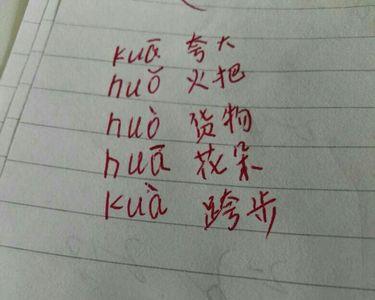 kuā 夸大
huǒ 火把
huò 货物
huā 花朵
kuà 跨步